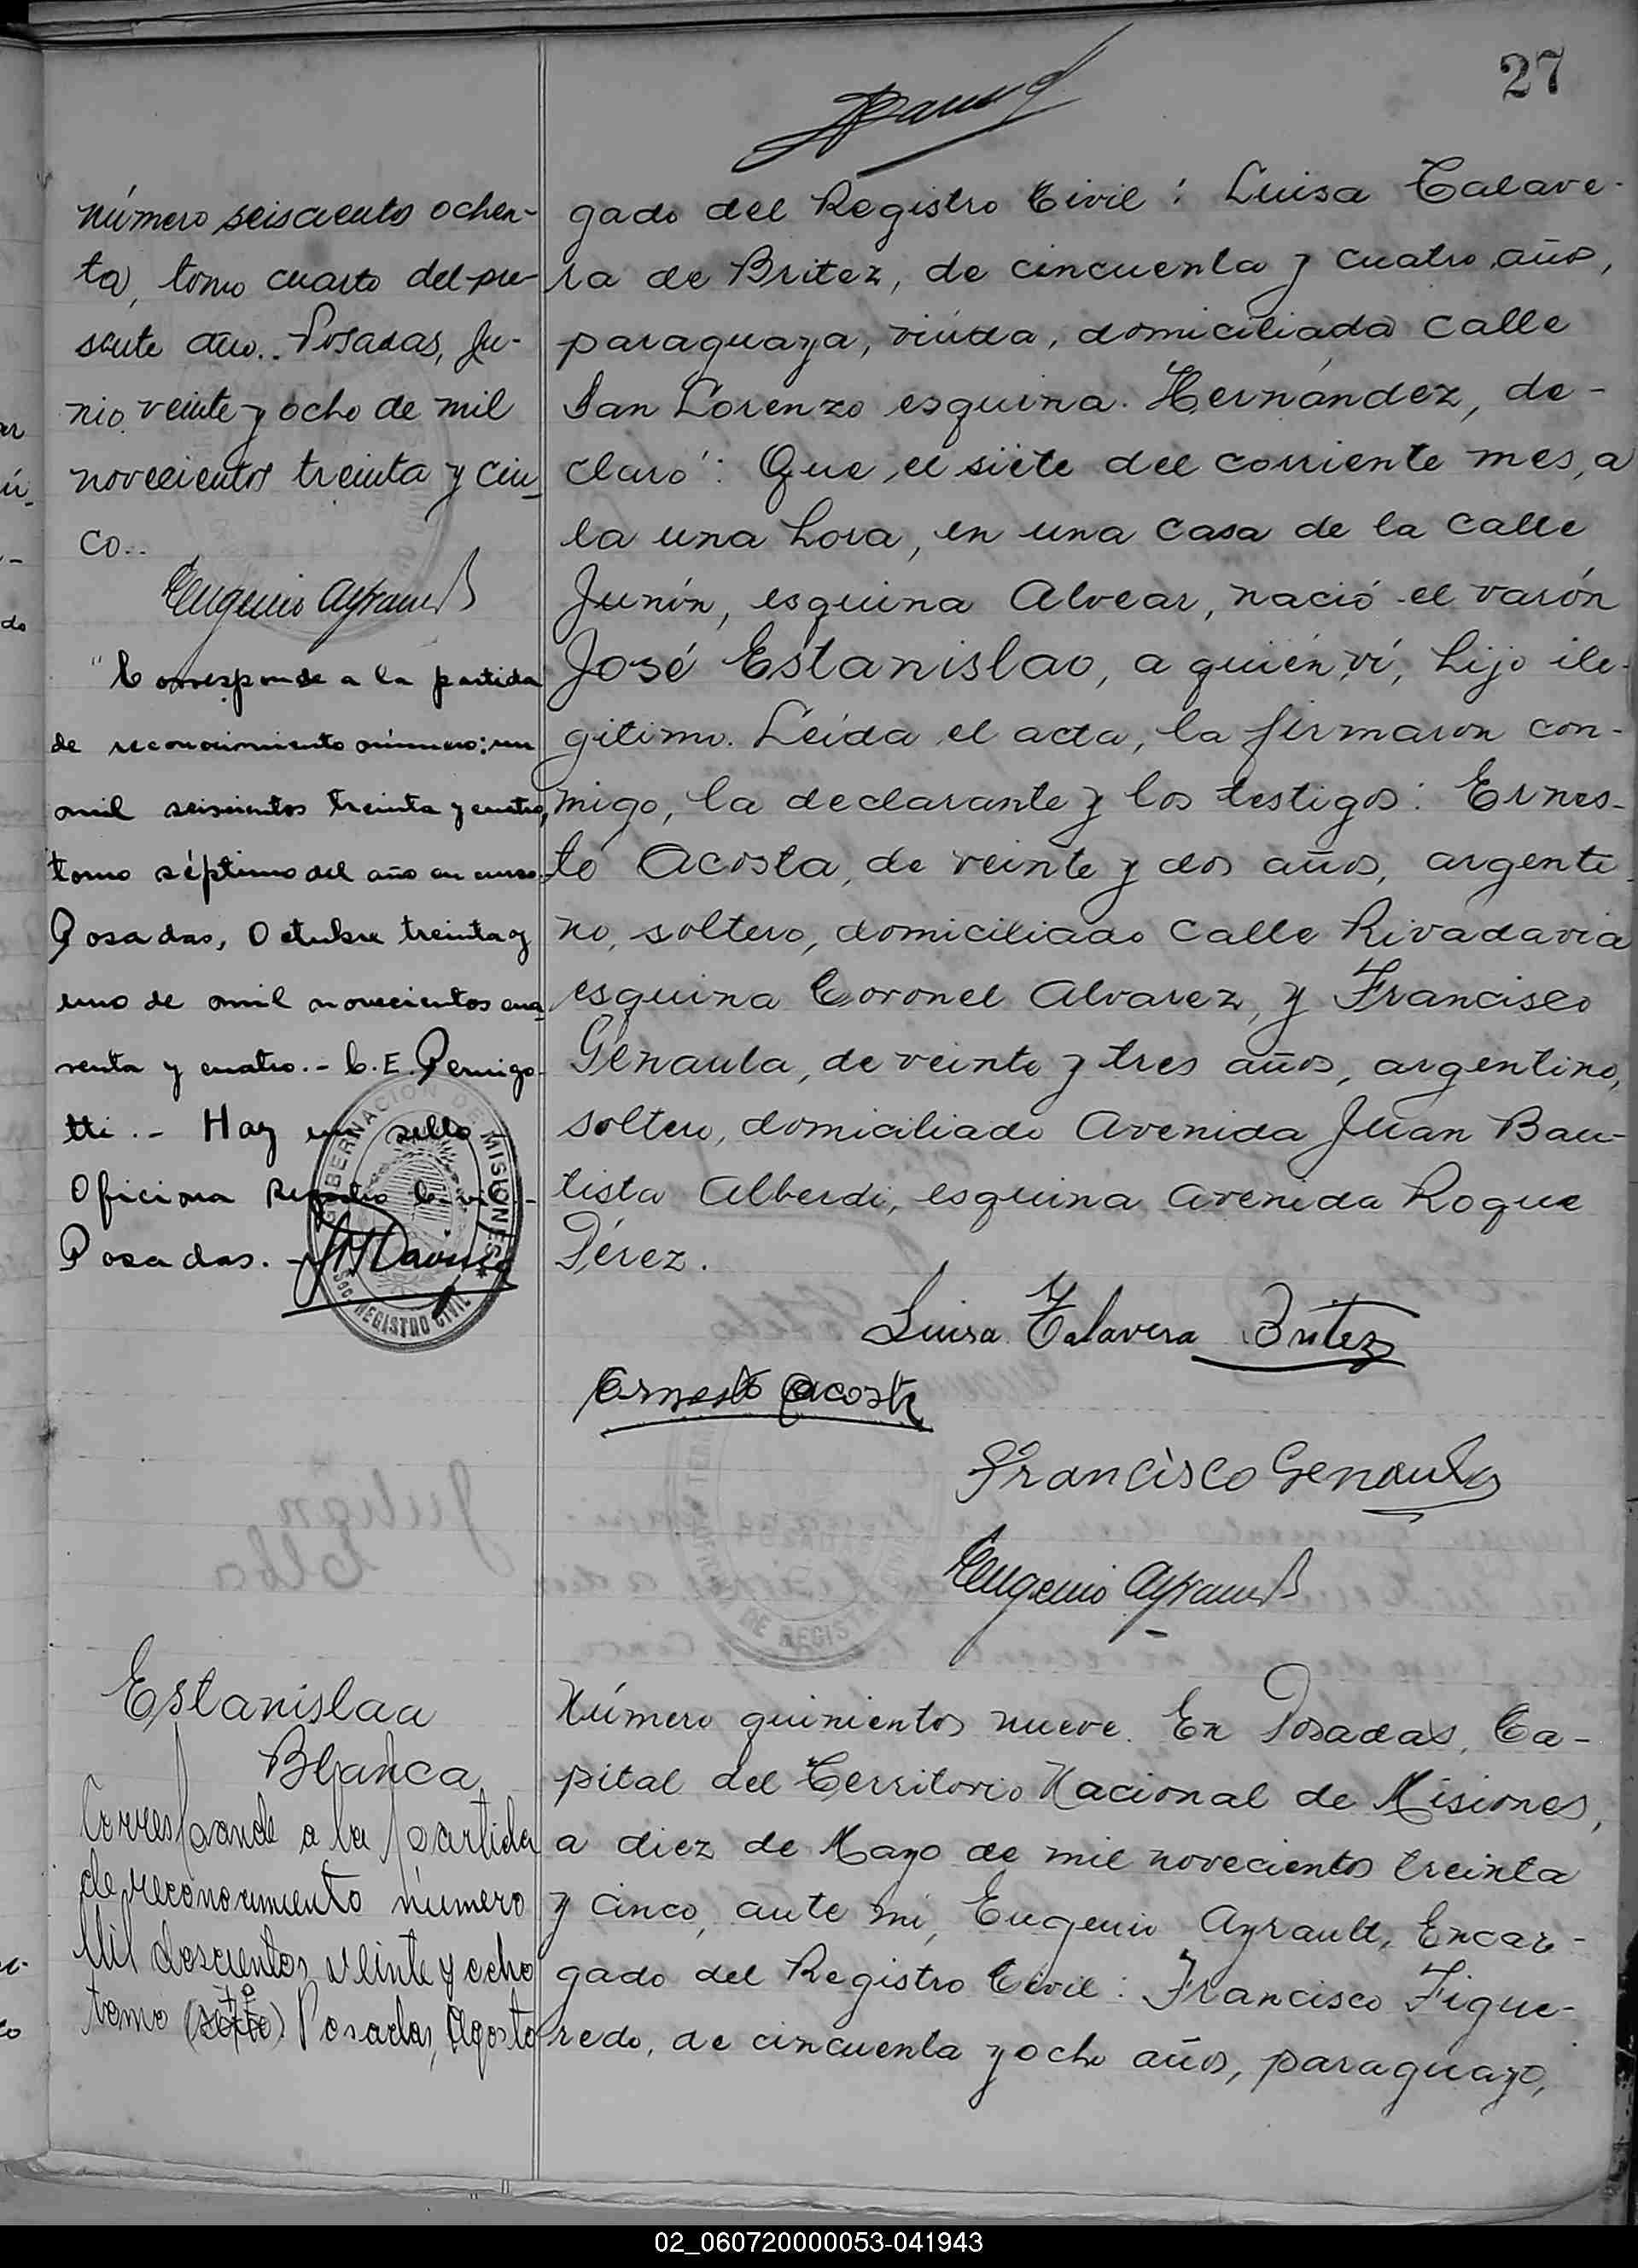 27
número seiscientos ochen-
ta, tomo cuarto del pre-
sente año.. Posadas, Ju-
nio veinte y ocho de mil
novecientos treinta y cin-
co..
Eugenio Ayrault
"Corresponde a la partida
de reconocimiento número: un
mil seiscientos treinta y cuatro,
tomo séptimo del año en curso.
Posadas, Octubre treinta y
uno de mil novecientos cua
renta y cuatro.- C. E. Pernigo-
tti.- Hay un sello
Oficina Registro Civil-
Posadas.-
GOBERNACION DE MISIONES
SOC. REGISTRO CIVIL
gado del Registro Civil: Luisa Talave-
ra de Britez, de cincuenta y cuatro años,
paraguaya, viuda, domiciliada calle
San Lorenzo esquina Hernández, de-
claró: Que el siete del corriente mes, a
la una hora, en una casa de la calle
Junín, esquina Alvear, nació el varón
José Estanislao, a quién ví, hijo ile-
gítimo. Leída el acta, la firmaron con-
migo, la declarante y los testigos: Ernes-
to Acosta, de veinte y dos años, argenti-
no, soltero, domiciliado calle Rivadavia
esquina Coronel Alvarez, y Francisco
Genaula, de veinte y tres años, argentino,
soltero, domiciliado Avenida Juan Bau-
tista Alberdi, esquina Avenida Roque
Pérez.
Luisa Talavera Britez
Ernesto Acosta
Francisco Genaula
Eugenio Ayrault
Estanislaa
Blanca
Corresponde a la partida
de reconocimiento número
Mil doscientos veinte y ocho
tomo Posadas, Agosto
Número quinientos nueve. En Posadas, Ca-
pital del Territorio Nacional de Misiones,
a diez de Mayo de mil novecientos treinta
y cinco, ante mí, Eugenio Ayrault, Encar-
gado del Registro Civil: Francisco Figue-
redo, de cincuenta y ocho años, paraguayo,
02_060720000053-041943